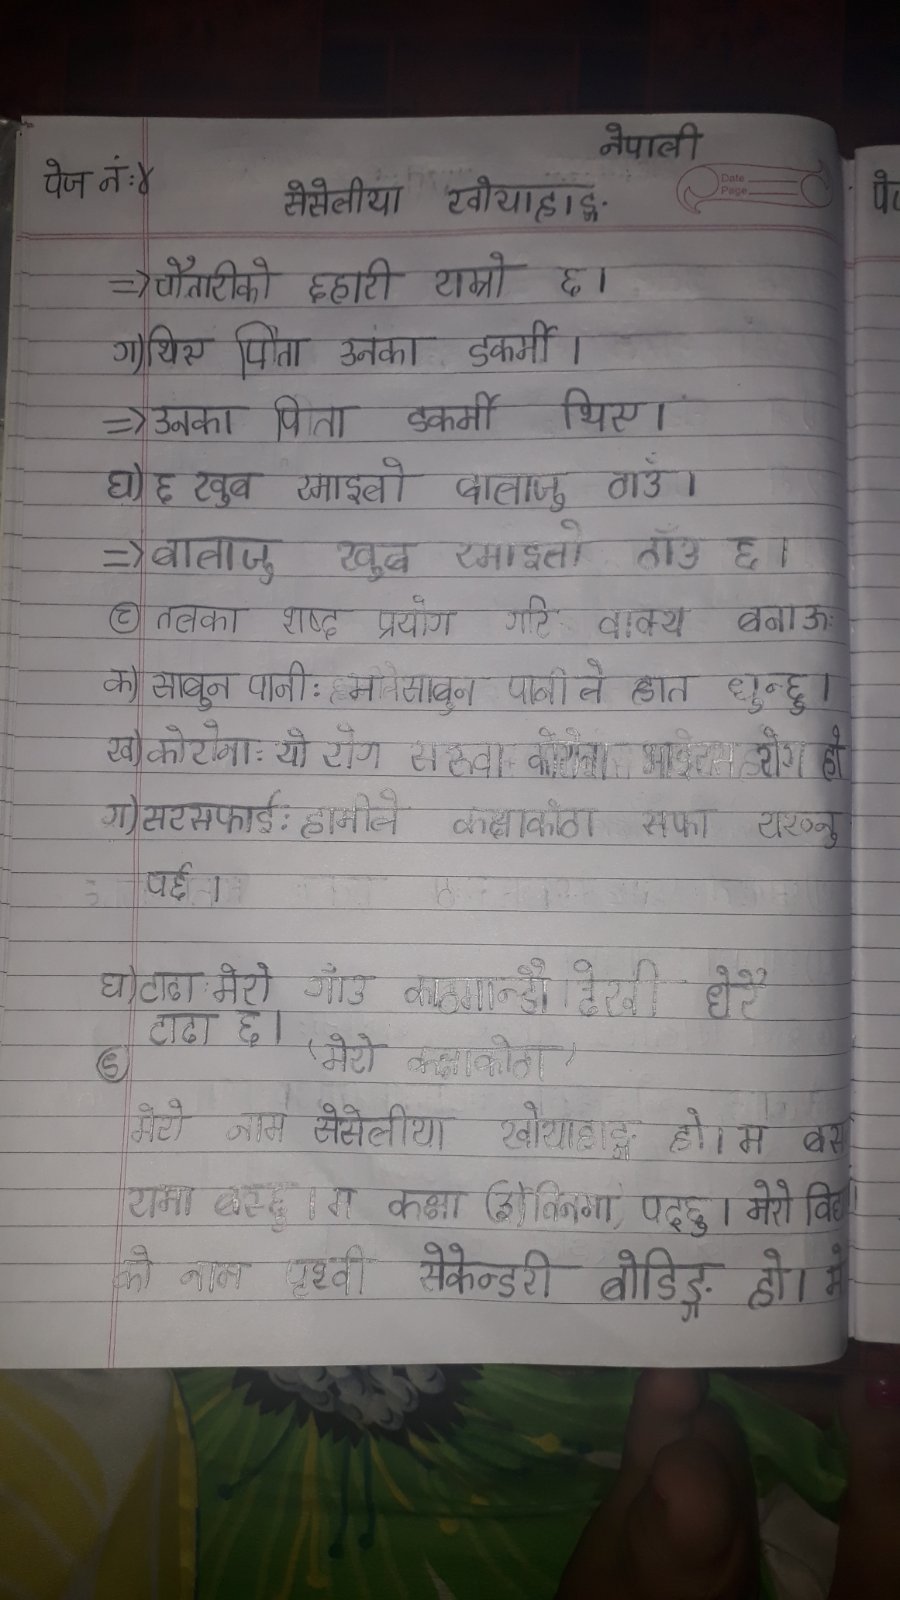 नेपाली
पेज नं:४
सेसेलीया खोयाहाङ्ग
Date
Page
=> चौतारीको छहारी राम्रो छ ।
ग) थिए पिता उनका डकर्मी ।
=> उनका पिता डकर्मी थिए ।
घ) छ खुब रमाइलो बालाजु ठाउँ ।
=> बालाजु खुब रमाइलो ठाँउ छ ।
तलका शब्द प्रयोग गरि वाक्य बनाऊ:
क) साबुन पानी: साबुन पानी ले हात धुन्छु ।
ख) कोरोना: यो रोग सरुवा रोग हो
ग) सरसफाई: हामीले कक्षाकोठा सफा
पर्छ ।
घ) टाढा: मेरो गाँउ काठमान्डौ देखी धेरै
टाढा छ ।
'मेरो कक्षाकोठा'
मेरो नाम सेसेलीया खोयाहाङ्ग हो । म
म कक्षा पढ्छु । मेरो
को नाम पृथ्वी सेकेन्डरी बोडिङ्ग हो । मे
पे